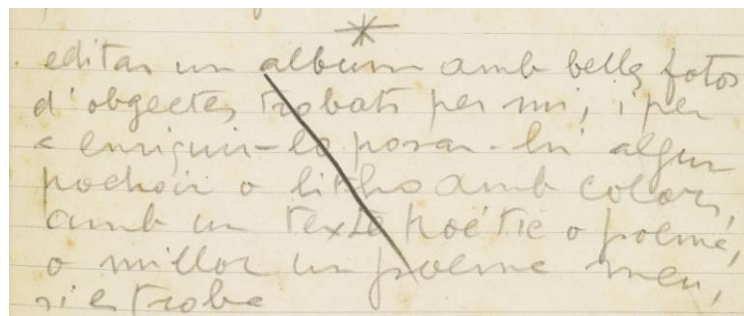 editar un album amb belles fotos
d'obgectes trobats per mi, i per
a enriquir-lo posar-hi algun
pochoir o litho amb colors,
amb un texte poètic o poème,
o millor un poème meu,
si es troba